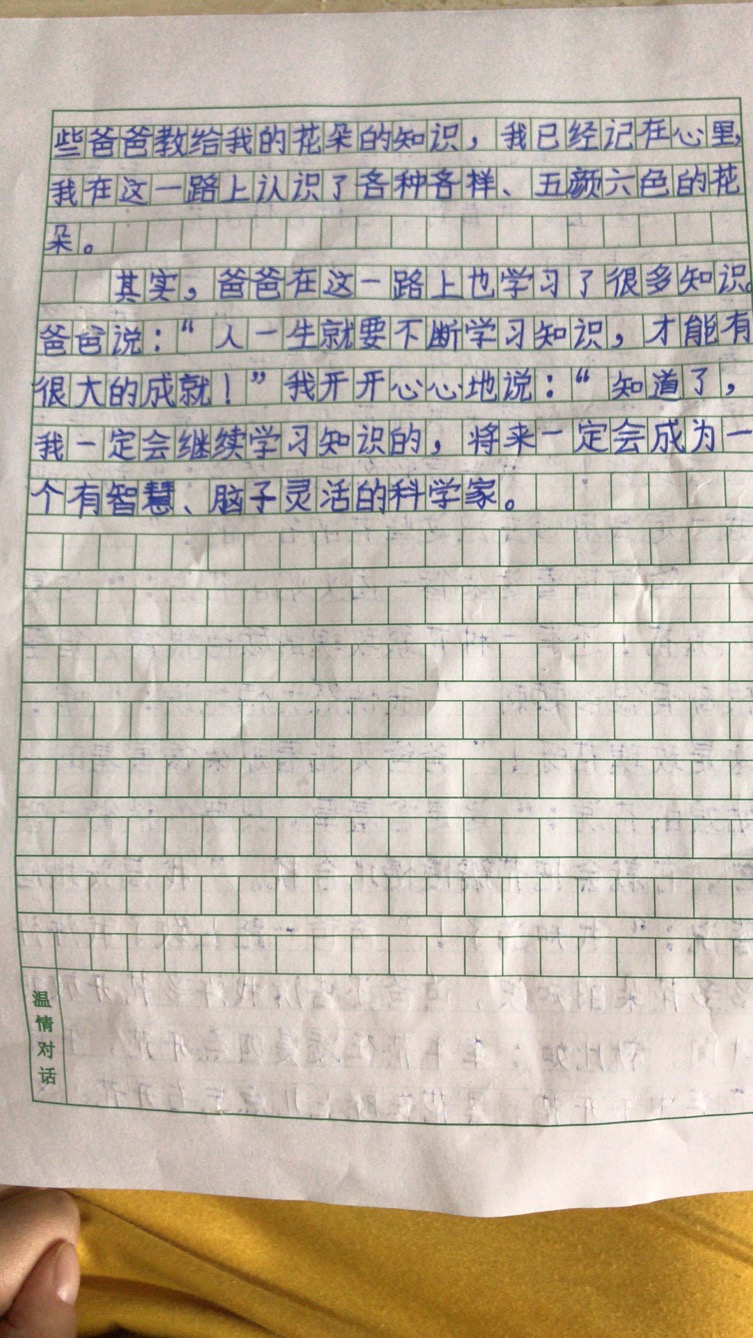 些爸爸教给我的花朵的知识，我已经记在心里，
我在这一路上认识了各种各样、五颜六色的花
朵。
其实，爸爸在这一路上也学习了很多知识。
爸爸说：“人一生就要不断学习知识，才能有
很大的成就！”我开开心心地说：“知道了，
我一定会继续学习知识的，将来一定会成为一
个有智慧、脑子灵活的科学家。
温情对话